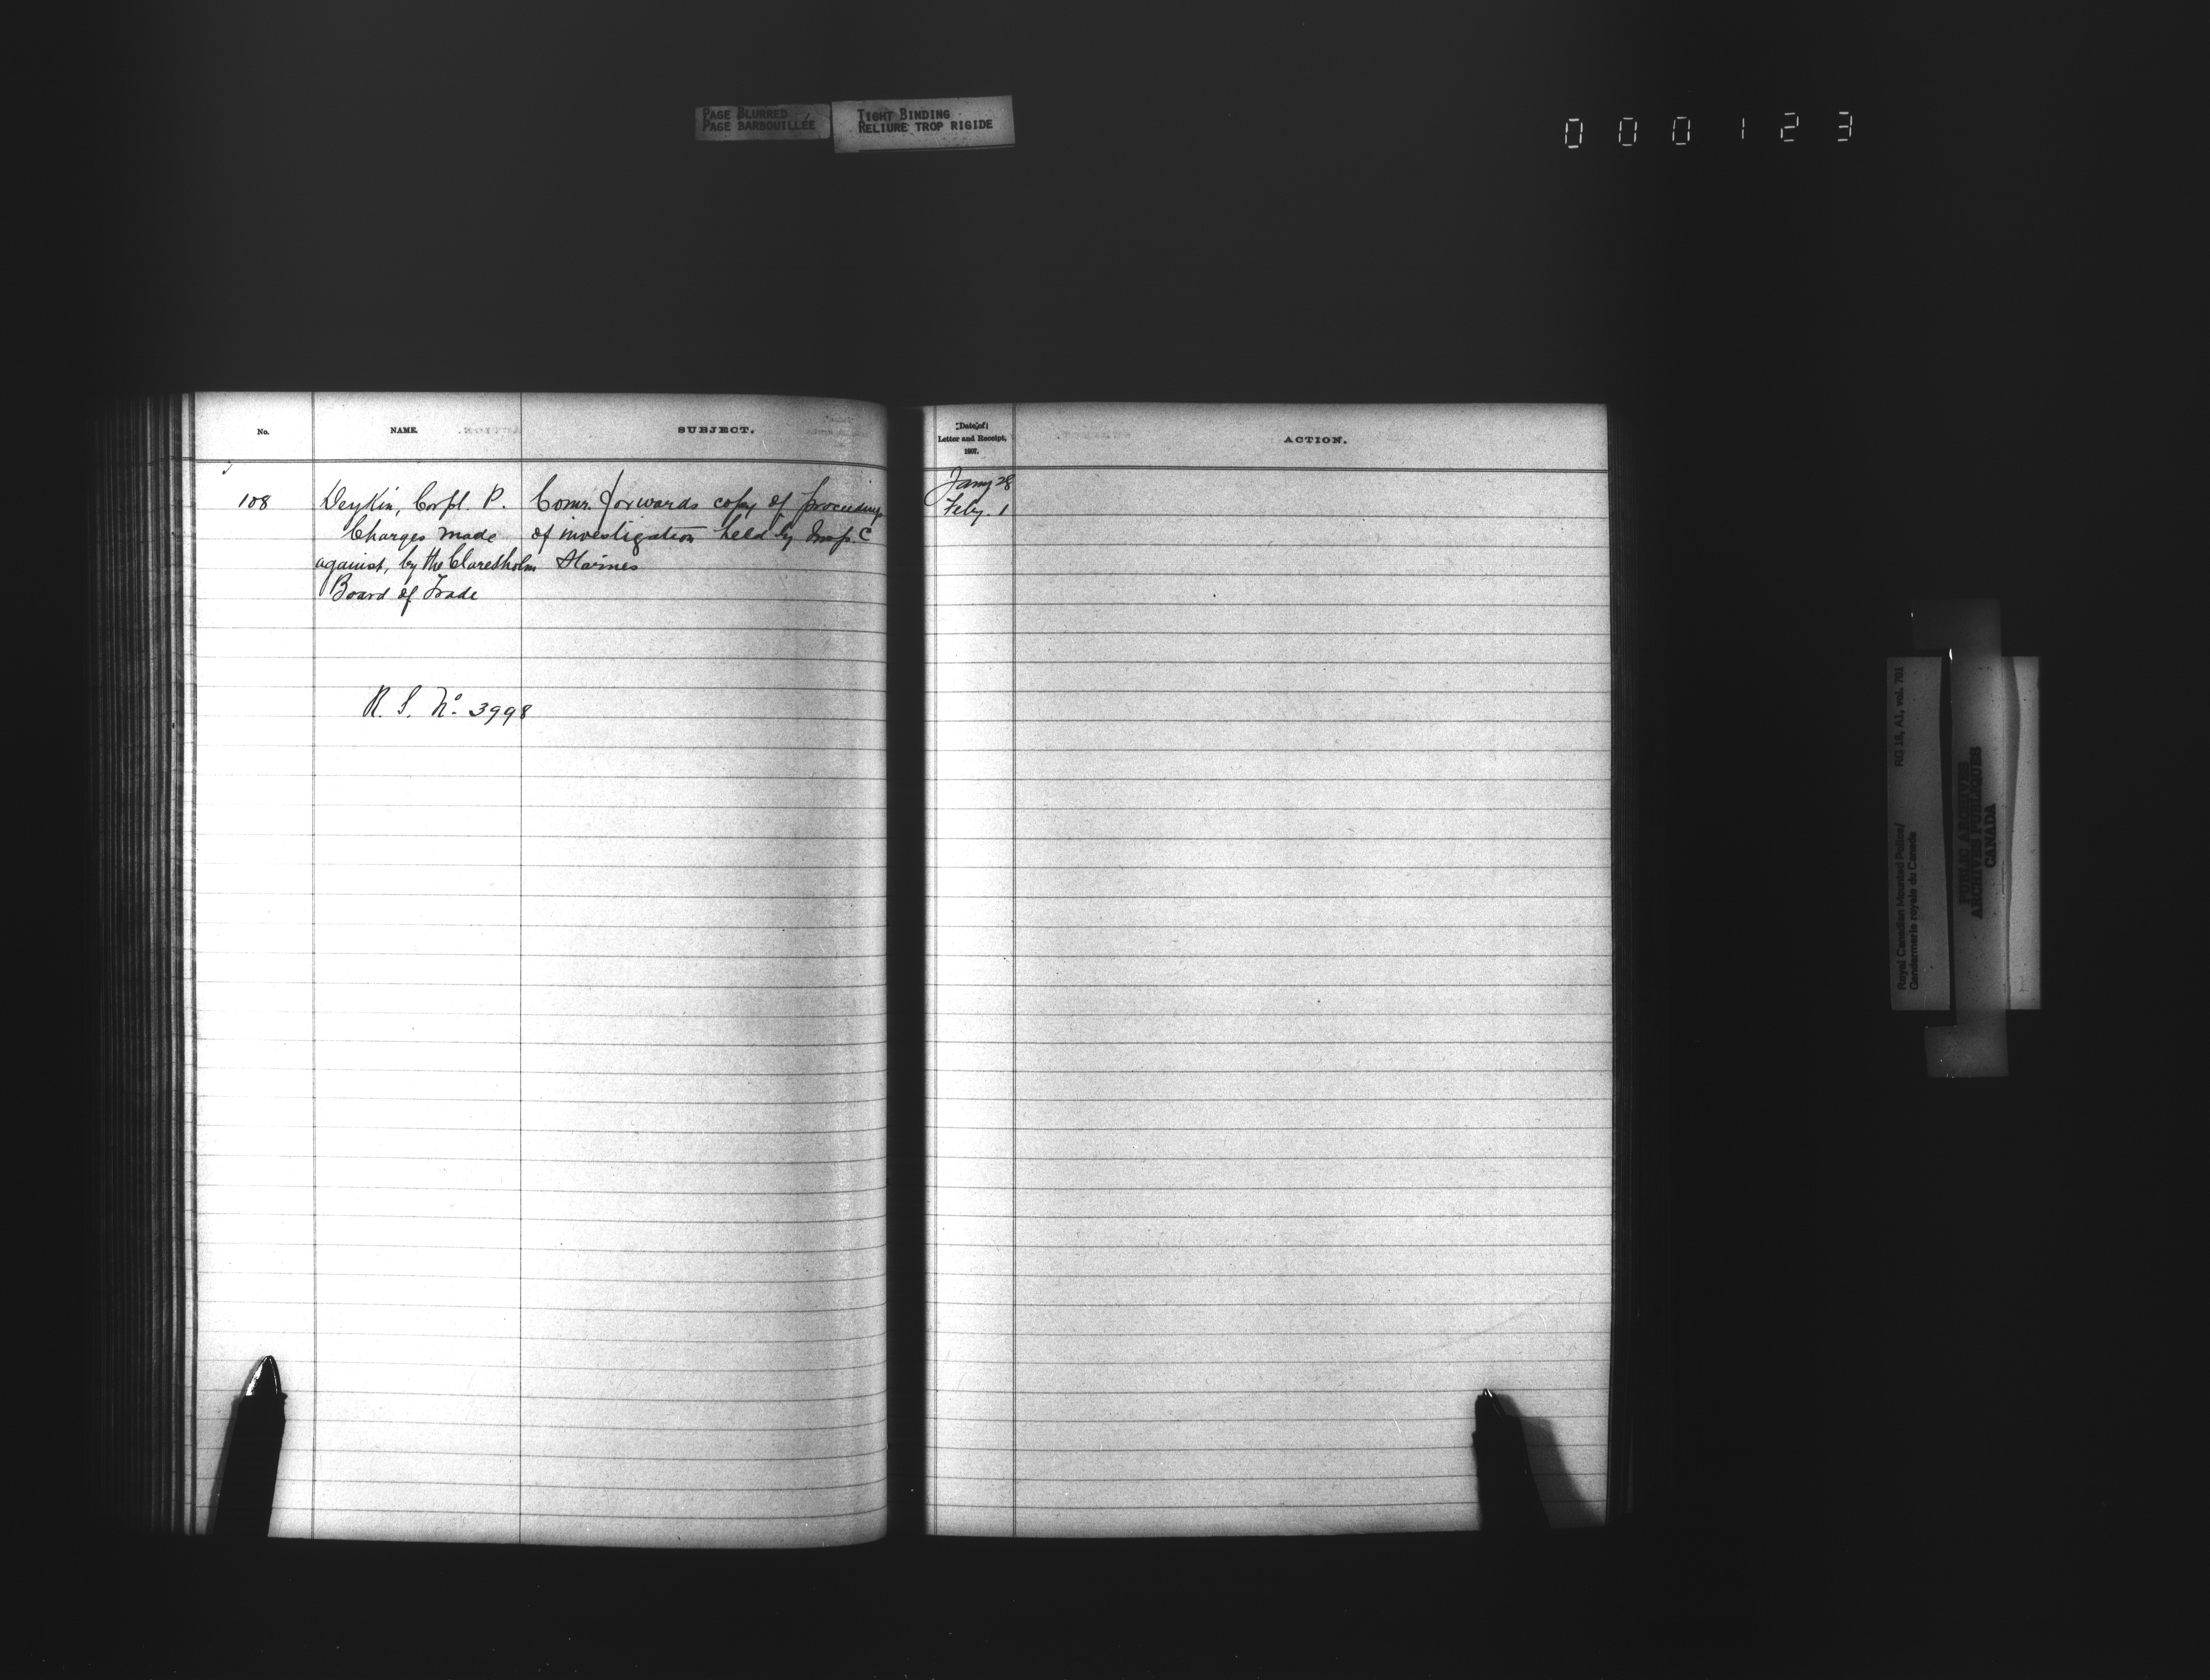 PAGE BLURRED
PAGE BARBOUILLÉE
TIGHT BINDING
RELIURE TROP RIGIDE
000123
No.
NAME.
SUBJECT.
Date of
Letter and Receipt,
1907.
ACTION.
108
Deykin, Corpl. P.
Charges made
against, by the Claresholm
Board of Trade
R. S. No. 3998
Comr. forwards copy of proceedings
of investigation held by Insp. C
Starnes
Jany 28
Feby. 1
Royal Canadian Mounted Police/
Gendarmerie royale du Canada
RG 18, A1, vol. 701
PUBLIC ARCHIVES
ARCHIVES PUBLIQUES
CANADA